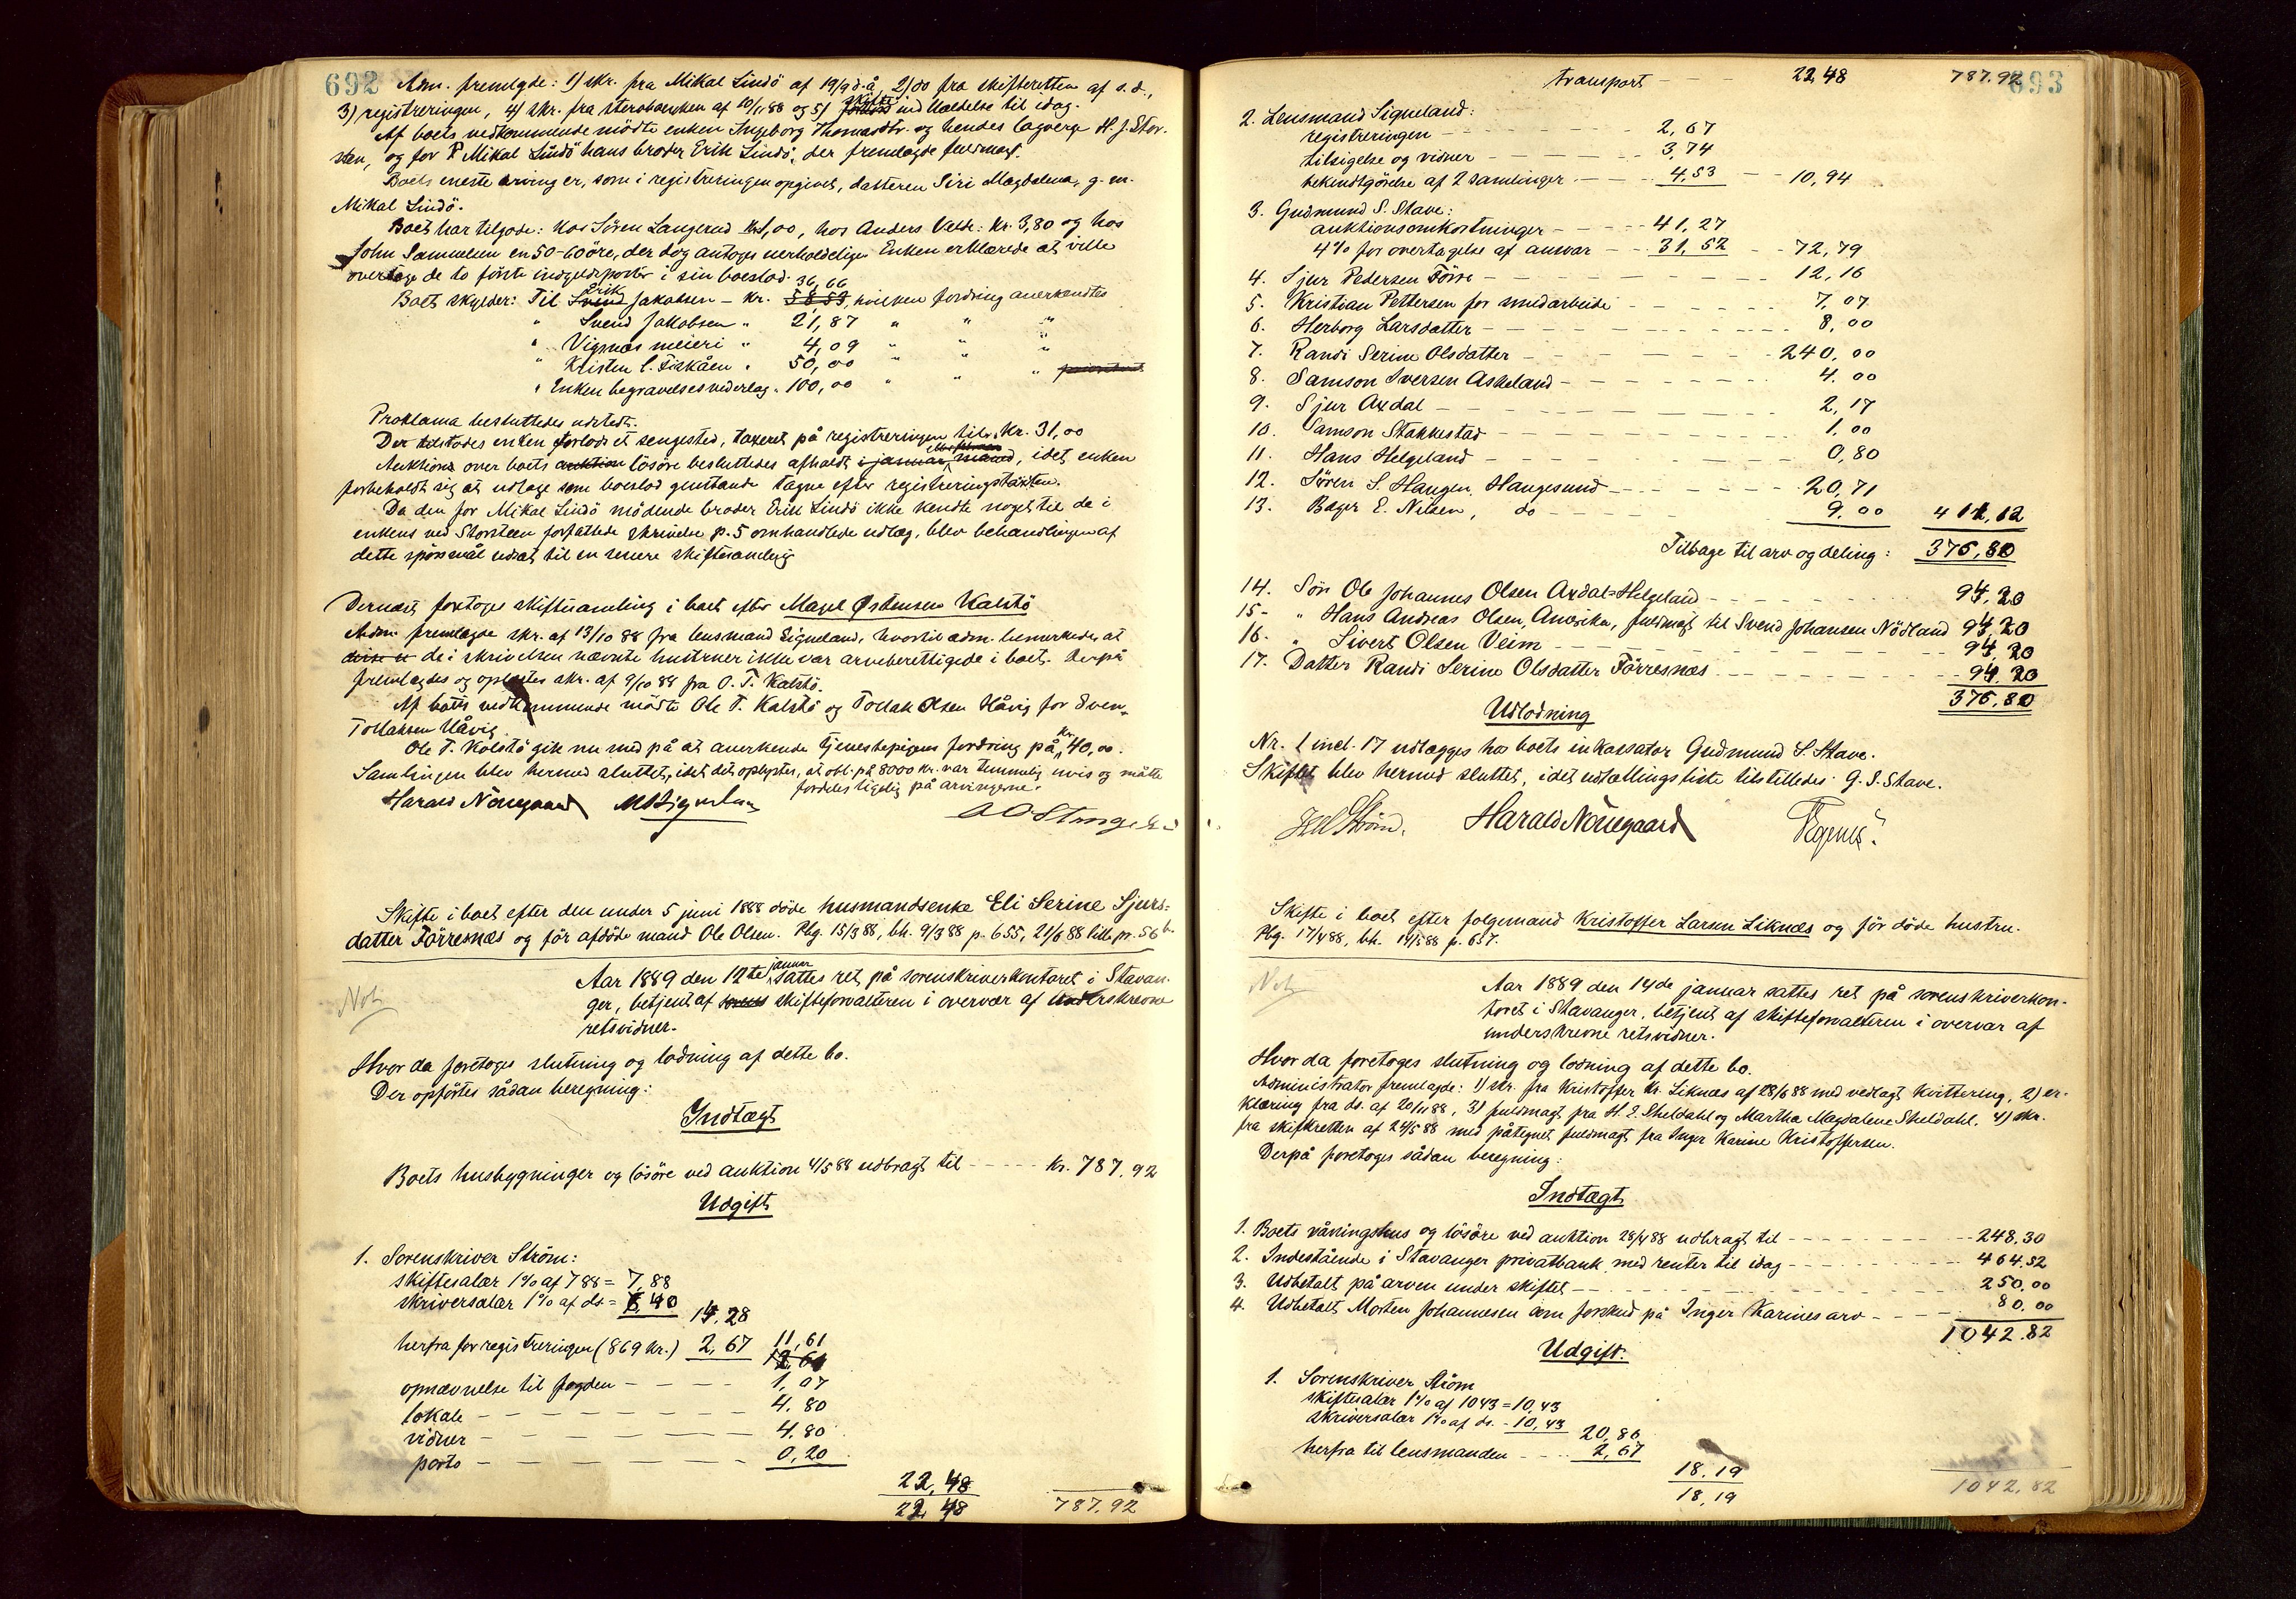 692
Adm. fremlagde: 1) skr. fra Mikal Lindö af 19/9 d.å, 2) do fra skifteretten af s.d.,
3) registreringen, 4) skr. fra 10/11 88 og 5) skifte indkaldelse til idag.
Af boets vedkommende mödte enken Ingeborg Thomasdtr. og hendes lagverge H. J. Stor-
sten, og for P Mikal Lindö hans broder Erik Lindö, der fremlagde fuldmagt.
Boets eneste arving er, som i registreringen opgivet, datteren Siri Magdalena, g. m.
Mikal Lindö.
Boet har tilgode: Hos Sören Langerud Kr 1,00, hos Anders Vatle: Kr. 3,80 og hos
John Samuelsen en 50-60 öre, der dog antoges uerholdelige. Enken erklærede at ville
overtage de to förste indgjeldsposter i sin boeslod.
Boet skylder: Til Svend Erik Jakobsen - Kr. 58,53 36,66 hvilken fordring anerkendtes
" Svend Jakobsen " 21,87 " " "
" Vignæs meieri " 4,09 " " "
" Kristen L. Fiskåen " 50,00 " " "
" Enken begravelsesvederlag " 100,00 " " " prioritet
Proklama besluttedes udstedt.
Der tilstodes enken forlods et sengested, taxeret på registreringen til Kr. 31,00
Auktion over boets auktion lösöre besluttedes afholdt i januar måned, idet enken
forbeholdt sig at udtage som boeslod genstande tagne efter registreringstaxten.
Da den for Mikal Lindö mödende broder Erik Lindö ikke kendte noget til de i
enkens ved Storsteen forfattede skrivelse p. 5 omhandlede udlæg, blev behandlingen af
dette spörsmål udsat til en senere skiftesamling
Dernæst foretoges skiftesamling i boet efter Magel Östensen Kalstö
Adm. fremlagde skr. af 13/10 88 fra lensmand Eigneland, hvortil adm. bemerkede, at
de i skrivelsen nævnte hustruer ikke var arveberettigede i boet. Derpå
fremlagdes og oplæstes skr. af 9/10 88 fra O. T. Kalstö.
Af boets vedkommende mödte Ole T. Kalstö og Tollak Olsen Håvig for Sven
Tollaksen Håvig.
Ole T. Kolstö gik nu med på at anerkende tjenestepigens fordring på Kr. 40,00.
Samlingen blev hermed sluttet, idet det oplystes, at obl. på 8000 kr. var temmelig uvis og måtte
fordeles ligelig på arvingerne.
Harald Nörregaard
Skifte i boet efter den under 5 juni 1888 döde husmandsenke Eli Serine Sjurs-
datter Förresnæs og för afdöde mand Ole Olsen. Plg. 15/3 88, bh. 9/3 88 p. 655, 21/6 88 lille pr. 56 b.
Not
Aar 1889 den 12te januar sattes ret på sorenskriverkontoret i Stavan-
ger, betjent af skifteforvalteren i overvær af underskrevne
retsvidner.
Hvor da foretoges slutning og lodning af dette bo.
Der opförtes sådan beregning:
Indtægt
Boets husbygninger og lösöre ved auktion 4/5 88 udbragt til - - - - - Kr. 787.92
Udgift
1. Sorenskriver Ström:
skiftesalær 1% af 788 = 7,88
skriversalær 1% af ds. = 6,40
14,28
herfra for registreringen (869 kr.) 2,67 11,61
opnævnelse til fogden - - - - 1,07
lokale - - - - - - - 4.80
vidner - - - - - - - 4.80
porto - - - - - - - 0,20
22,48
22,48 787.92
693
transport - - - 22,48 787.92
2. Lensmand Eigneland:
registreringen - - - - - - - 2,67
tilsigelse og vidner - - - - - - 3,74
bekindtgörelse af 2 samlinger - - - 4,53 - - 10,94
3. Gudmund S. Stave:
auktionsomkostninger - - - - - 41,27
4% for overtagelse af ansvar - - 31,52 - - 72,79
4. Sjur Pedersen Förre - - - - - - - - 12,16
5. Kristian Pettersen for smedarbeide - - - - - 7,07
6. Herborg Larsdatter - - - - - - - - 8,00
7. Randi Serine Olsdatter - - - - - - 240,00
8. Samson Iversen Askeland - - - - - - - 4.00
9. Sjur Axdal - - - - - - - - 2,17
10. Samson Stakkestad - - - - - - - 1,00
11. Hans Helgeland - - - - - - - 0,80
12. Sören S. Haugen, Haugesund - - - - - - 20,71
13. Bager E. Nilsen, do - - - - - 9.00 411,12
Tilbage til arv og deling: 376,80
14. Sön Ole Johannes Olsen Axdal-Helgeland - - - - - - 94,20
15- " Hans Andreas Olsen, Amerika, fuldmagt til Svend Johansen Nödland 94,20
16. " Sivert Olsen Veim - - - - - - - - 94,20
17. Datter Randi Serine Olsdatter Förresnæs - - - - - 94,20
376,80
Udlodning
Nr. 1 incl. 17 udlægges hos boets inkassator Gudmund S. Stave.
Skiftet blev hermed sluttet, idet udtællingsliste tilstilledes G. S. Stave.
Harald Nörregaard
Skifte i boet efter folgemand Kristoffer Larsen Liknæs og för döde hustru.
Plg. 17/4 88, bh. 14/5 88 p. 657.
Not
Aar 1889 den 14de januar sattes ret på sorenskriverkon-
toret i Stavanger, betjent af skifteforvalteren i overvær af
underskrevne retsvidner.
Hvor da foretoges slutning og lodning af dette bo.
Administrator fremlagde: 1) skr. fra Kristoffer Kr. Liknæs af 28/6 88 med vedlagt kvittering, 2) er-
klæring fra ds. af 20/11 88, 3) fuldmagt fra H. E. Sheldahl og Martha Magdalene Sheldahl, 4) skr.
fra skifteretten af 24/5 88 med påtegnet fuldmagt fra Inger Karine Kristoffersen.
Derpå foretoges sådan beregning:
Indtægt
1. Boets våningshus og lösöre ved auktion 28/4 88 udbragt til - - - - - - - 248.30
2. Indestående i Stavanger privatbank med renter til idag - - - - - - - 464.52
3. Udbetalt på arven under skiftet - - - - - - - 250.00
4. Udbetalt Morten Johannesen som forskud på Inger Karines arv - - - 80.00
1042.82
Udgift.
1. Sorenskriver Ström
skiftesalær 1% af 1043 = 10,43
skriversalær 1% af ds. - 10,43 20,86
herfra til lensmanden - - - 2,67
18.19
18,19 1042,82